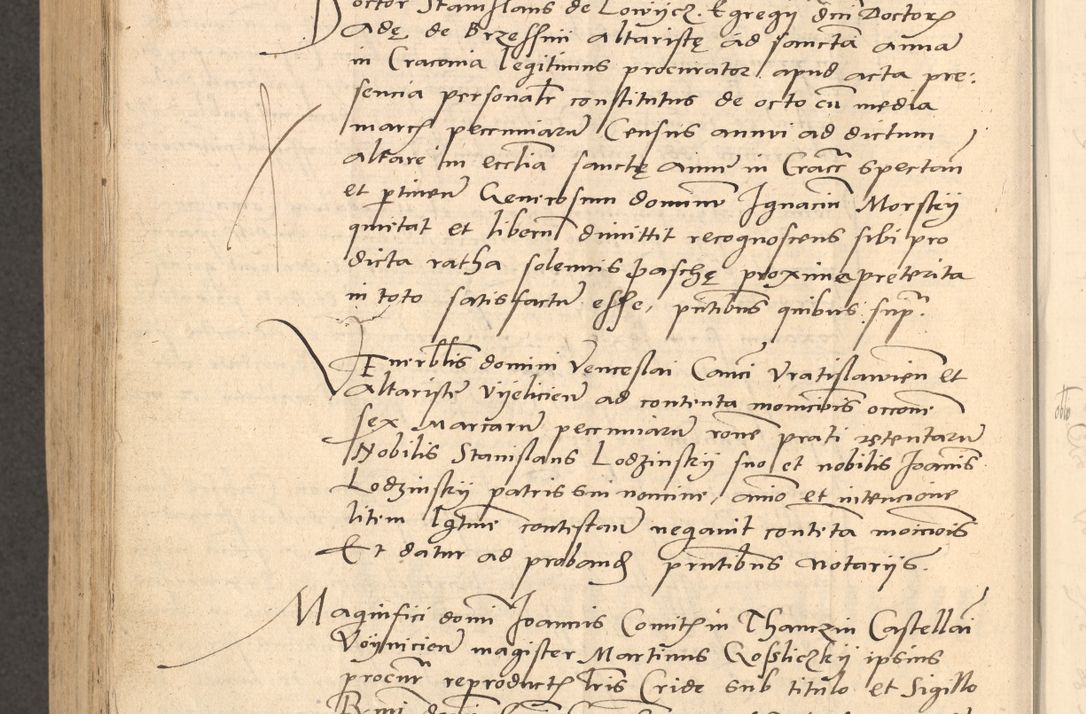 Doctor Stanislaus de Lowijcz. Egregij dni Doctoris
Adę de Brzessini altaristę ad sanctā annā
in Cracovia legitimus procurator apud acta pre:
sencia personalr constitutus de octo cū media
marcs pecuniarū Census annui ad dictum
altare in ecclīa sanctę Anne in Craccs spectan
et ptinen Generosum dominū Ignaciū Morskij
quietat et liberū dimittit recognoscens sibi pro
dicta ratha solennis paschę proxime preterita
in toto satisfactū esse, pntibus quibus sup.
Venerblis domini Venceslai Canci Vratislavien et
Altariste Vijelicien ad contenta monicionis occone
sex Marcarū pecuniarū rone prati retentarū
Nobilis Stanislaus Lodzinskij suo et nobilis Joannis
Lodzinskij patris sui nomine, animo et intencione
litem lgtime contestan negavit contēta moicionis
Et datur ad proband pntibus Notarijs.
Magnifici domi Joannis Comitis in Thanczin Castellani
Voijnicien magister Martinus Rosliczkij ipsius
procur reproductis lris Cride sub titulo et Sigillo